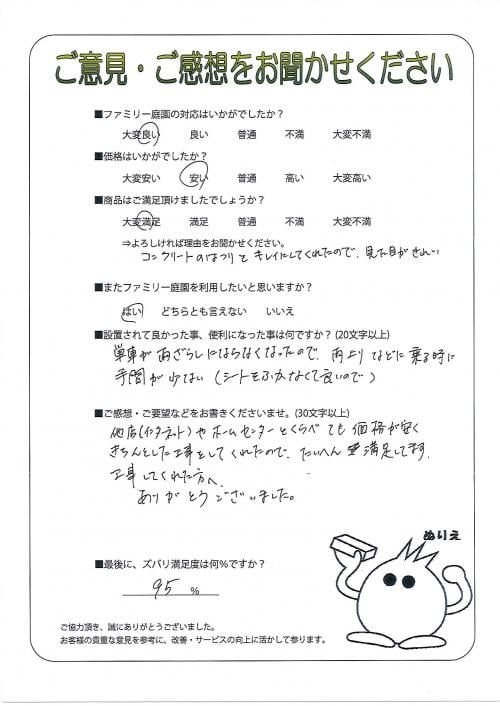 ご意見・ご感想をお聞かせください
■ファミリー庭園の対応はいかがでしたか？
大変良い 良い 普通 不満 大変不満
■価格はいかがでしたか？
大変安い 安い 普通 高い 大変高い
■商品はご満足頂けましたでしょうか？
大変満足 満足 普通 不満 大変不満
⇒よろしければ理由をお聞かせください。
コンクリートのはつりとキレイにしてくれたので、見た目がきれい
■またファミリー庭園を利用したいと思いますか？
はい どちらとも言えない いいえ
■設置されて良かった事、便利になった事は何ですか？(20文字以上)
単車が雨ざらしにはらなくなったので、雨上りなどに乗る時に
手間が少ない(シートをふかなくて良いので)
■ご感想・ご要望などをお書きくださいませ。(30文字以上)
他店(インターネット)やホームセンターとくらべても価格が安く
きちんとした工事をしてくれたので、たいへん満足してます。
工事してくれた方へ、
ありがとうございました。
ぬりえ
■最後に、ズバリ満足度は何％ですか？
95 %
ご協力頂き、誠にありがとうございました。
お客様の貴重な意見を参考に、改善・サービスの向上に活かして参ります。